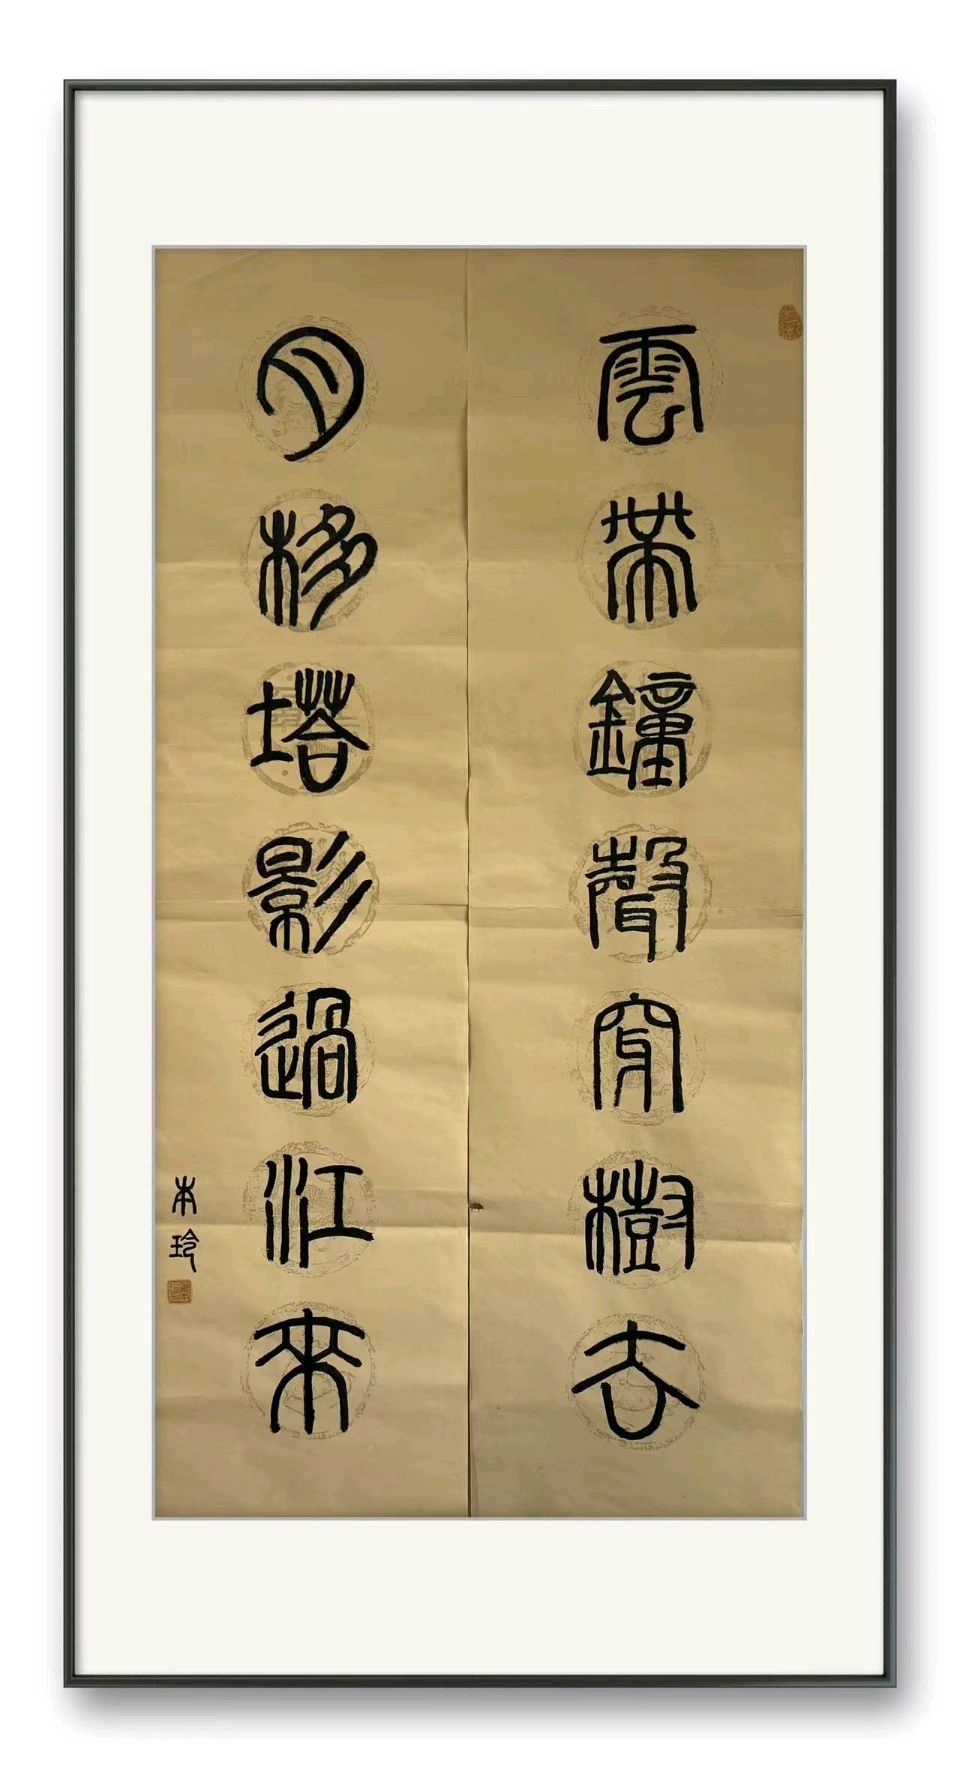 雲帶鐘聲穿樹去
月移塔影過江來
本玲